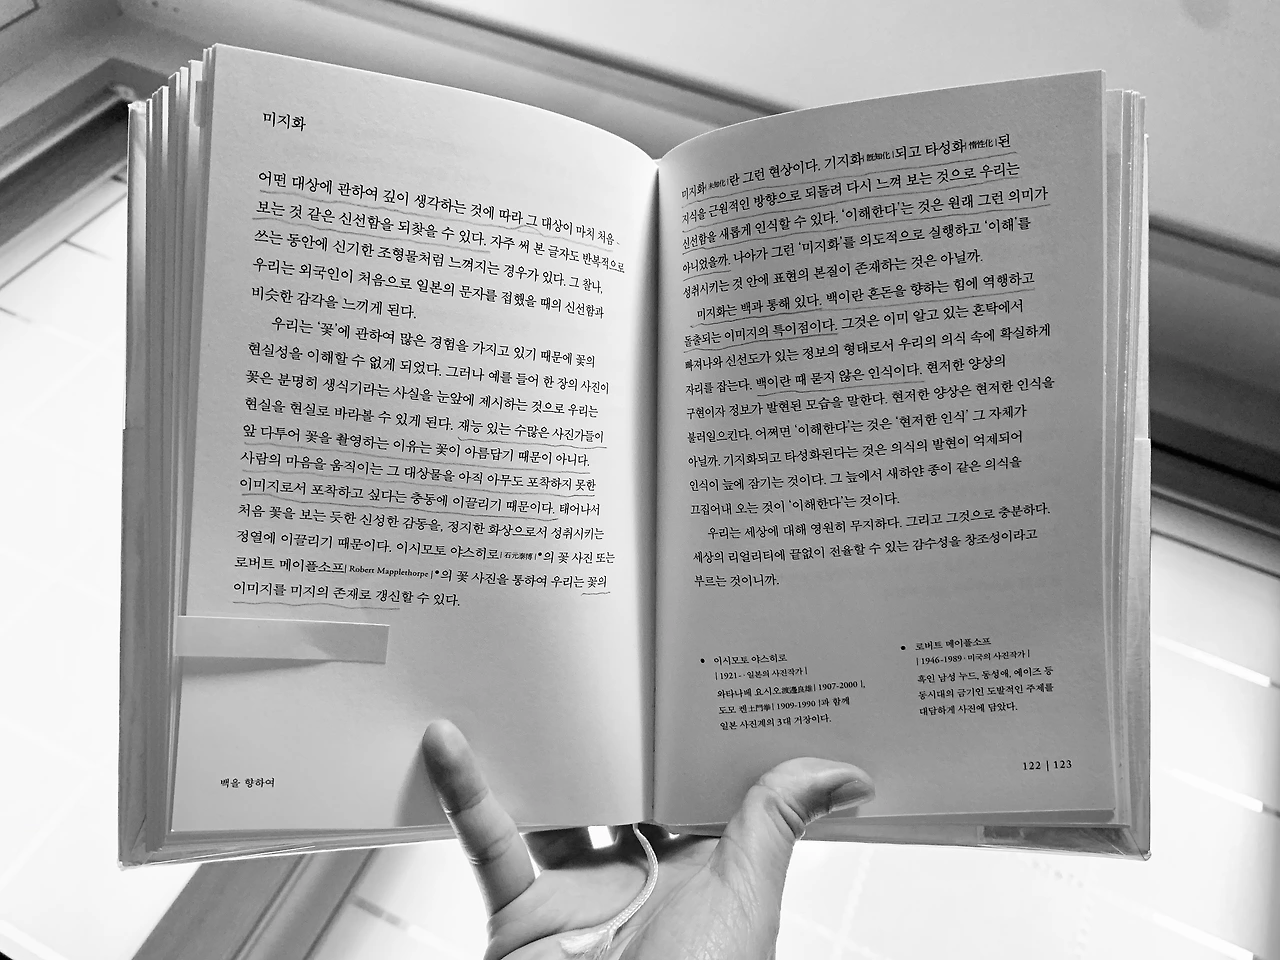 미지화
어떤 대상에 관하여 깊이 생각하는 것에 따라 그 대상이 마치 처음
보는 것 같은 신선함을 되찾을 수 있다. 자주 써 본 글자도 반복적으로
쓰는 동안에 신기한 조형물처럼 느껴지는 경우가 있다. 그 찰나,
우리는 외국인이 처음으로 일본의 문자를 접했을 때의 신선함과
비슷한 감각을 느끼게 된다.
우리는 ‘꽃’에 관하여 많은 경험을 가지고 있기 때문에 꽃의
현실성을 이해할 수 없게 되었다. 그러나 예를 들어 한 장의 사진이
꽃은 분명히 생식기라는 사실을 눈앞에 제시하는 것으로 우리는
현실을 현실로 바라볼 수 있게 된다. 재능 있는 수많은 사진가들이
앞 다투어 꽃을 촬영하는 이유는 꽃이 아름답기 때문이 아니다.
사람의 마음을 움직이는 그 대상물을 아직 아무도 포착하지 못한
이미지로서 포착하고 싶다는 충동에 이끌리기 때문이다. 태어나서
처음 꽃을 보는 듯한 신성한 감동을, 정지한 화상으로서 성취시키는
정열에 이끌리기 때문이다. 이시모토 야스히로|石元泰博|●의 꽃 사진 또는
로버트 메이플소프|Robert Mapplethorpe|●의 꽃 사진을 통하여 우리는 꽃의
이미지를 미지의 존재로 갱신할 수 있다.
백을 향하여
미지화|未知化|란 그런 현상이다. 기지화|旣知化|되고 타성화|惰性化|된
지식을 근원적인 방향으로 되돌려 다시 느껴 보는 것으로 우리는
신선함을 새롭게 인식할 수 있다. ‘이해한다’는 것은 원래 그런 의미가
아니었을까. 나아가 그런 ‘미지화’를 의도적으로 실행하고 ‘이해’를
성취시키는 것 안에 표현의 본질이 존재하는 것은 아닐까.
미지화는 백과 통해 있다. 백이란 혼돈을 향하는 힘에 역행하고
돌출되는 이미지의 특이점이다. 그것은 이미 알고 있는 혼탁에서
빠져나와 신선도가 있는 정보의 형태로서 우리의 의식 속에 확실하게
자리를 잡는다. 백이란 때 묻지 않은 인식이다. 현저한 양상의
구현이자 정보가 발현된 모습을 말한다. 현저한 양상은 현저한 인식을
불러일으킨다. 어쩌면 ‘이해한다’는 것은 ‘현저한 인식’ 그 자체가
아닐까. 기지화되고 타성화된다는 것은 의식의 발현이 억제되어
인식이 늪에 잠기는 것이다. 그 늪에서 새하얀 종이 같은 의식을
끄집어내 오는 것이 ‘이해한다’는 것이다.
우리는 세상에 대해 영원히 무지하다. 그리고 그것으로 충분하다.
세상의 리얼리티에 끝없이 전율할 수 있는 감수성을 창조성이라고
부르는 것이니까.
● 이시모토 야스히로
|1921- · 일본의 사진작가|
와타나베 요시오渡邊良雄|1907-2000|,
도모 켄土門拳|1909-1990|과 함께
일본 사진계의 3대 거장이다.
● 로버트 메이플소프
|1946-1989 · 미국의 사진작가|
흑인 남성 누드, 동성애, 에이즈 등
동시대의 금기인 도발적인 주제를
대담하게 사진에 담았다.
122 | 123